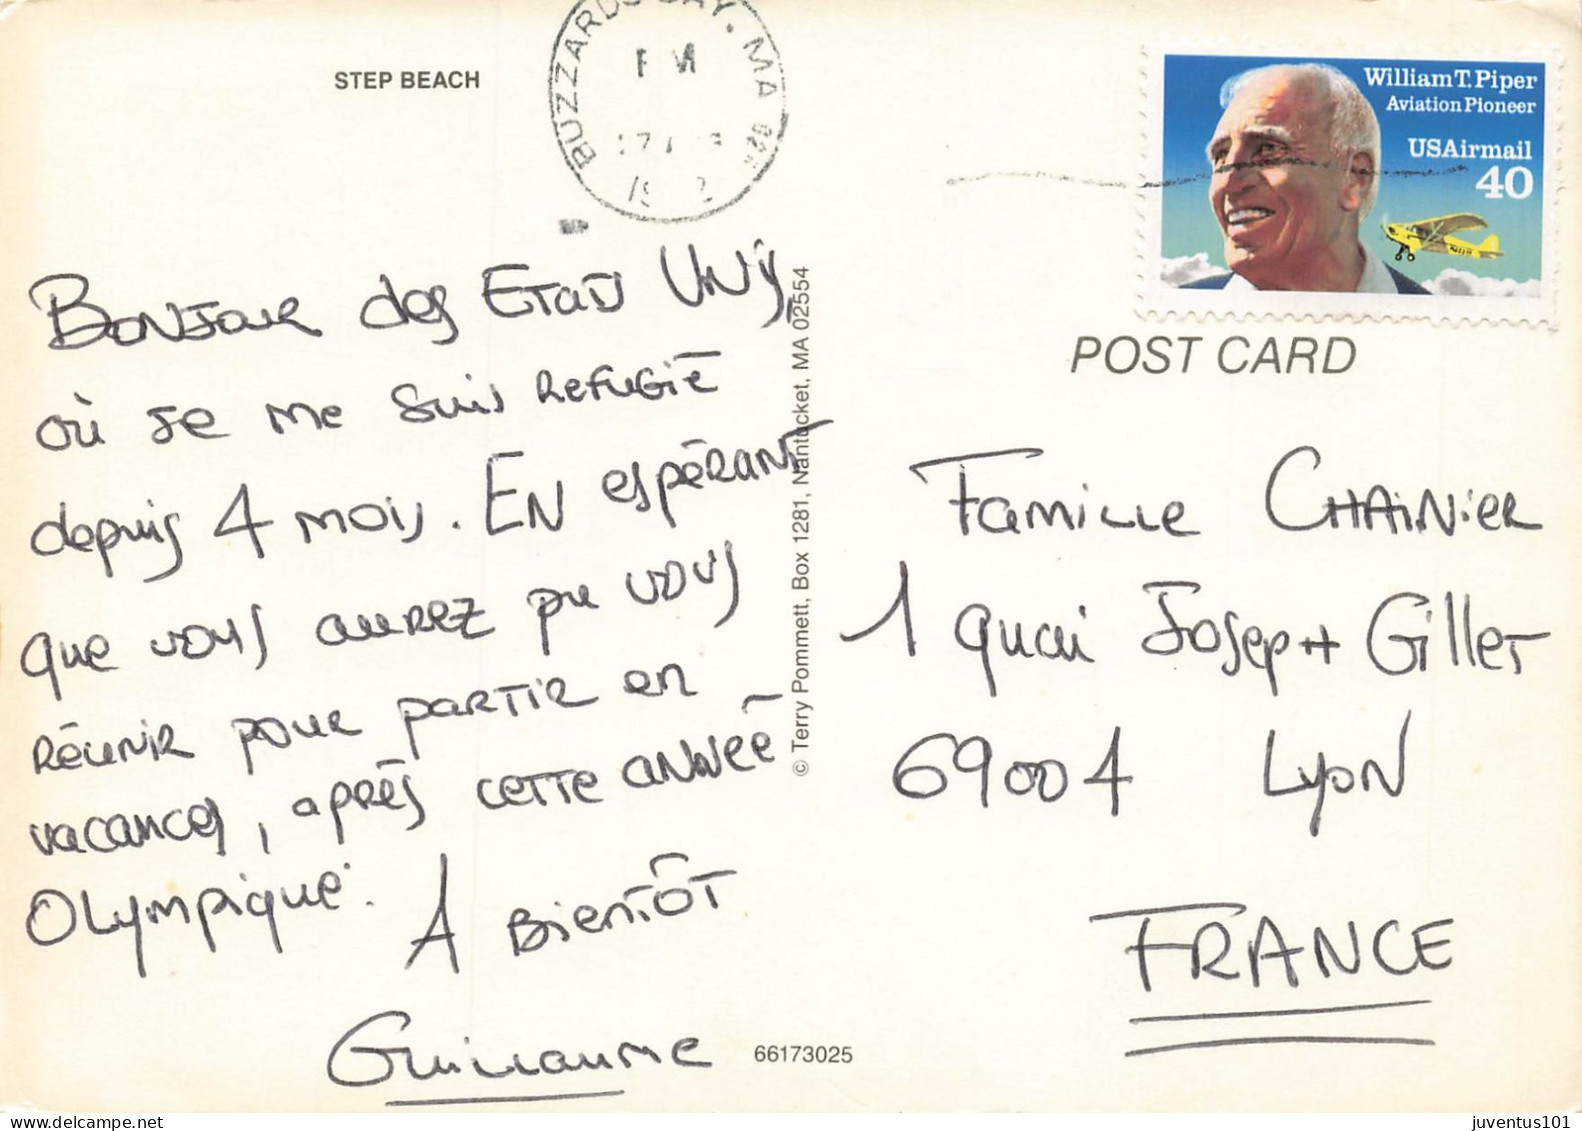 STEP BEACH
BUZZARDS BAY, MA
PM
William T. Piper
Aviation Pioneer
USAirmail
40
POST CARD
Bonjour des Etats Unis,
où je me suis refugié
depuis 4 mois. En espérant
que vous aurez pu vous
réunir pour partir en
vacances, après cette année
Olympique. A Bientôt
Guillaume
© Terry Pommett, Box 1281, Nantucket, MA 02554
66173025
Famille CHAiNier
1 quai Joseph Gillet
69004 Lyon
FRANCE
juventus101